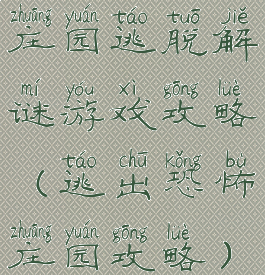 zhuāng yuán táo tuō jiě
庄园逃脱解
mí yóu xì gōng lüè
谜游戏攻略
táo chū kǒng bù
（逃出恐怖
zhuāng yuán gōng lüè
庄园攻略）